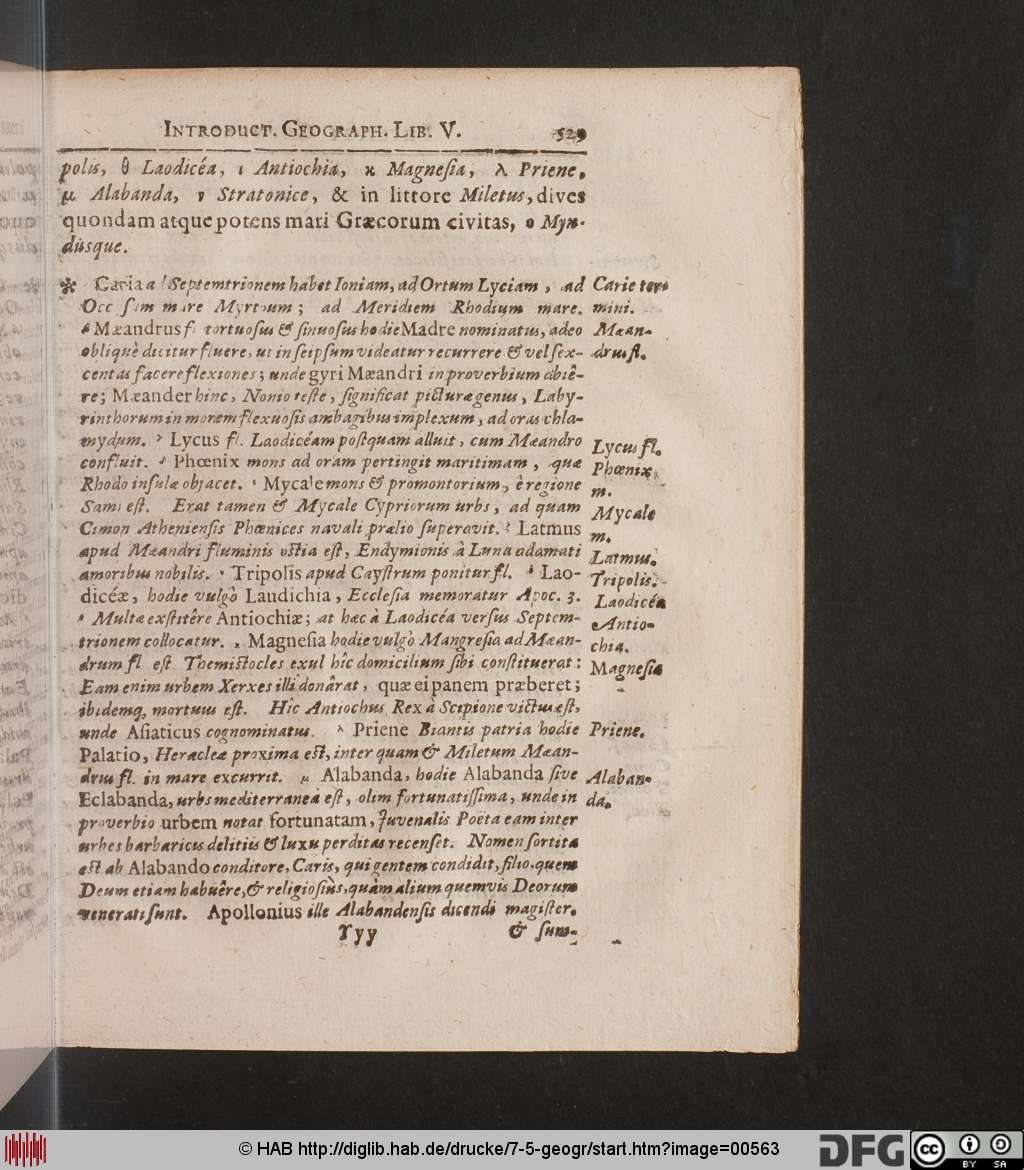 INTRODUCT. GEOGRAPH. LIB. V. 529
polis, θ Laodicéa, ι Antiochia, κ Magneſia, λ Priene,
μ Alabanda, ν Stratonice, & in littore Miletus, dives
quondam atque potens mari Græcorum civitas, ο Myn-
düsque.
* Caria a Septemtrionem habet Ioniam, ad Ortum Lyciam, ad
Occ ſum mare Myrtoum; ad Meridiem Rhodium mare.
Mæandrus f. tortuoſus & ſinuoſus hodie Madre nominatus, adeo
obliquè dicitur fluere, ut in ſeipſum videatur recurrere & vel ſex-
centas facere flexiones; unde gyri Mæandri in proverbium abiê-
re; Mæander hinc, Nonio teſte, ſignificat picturæ genus, Laby-
rinthorum in morem flexuoſis ambagibus implexum, ad oras chla-
mydum. Lycus fl. Laodicéam poſtquam alluit, cum Mæandro
confluit. Phœnix mons ad oram pertingit maritimam, quæ
Rhodo inſulæ objacet. Mycale mons & promontorium, è regione
Sami eſt. Erat tamen & Mycale Cypriorum urbs, ad quam
Cimon Athenienſis Phœnices navali prælio ſuperavit. Latmus
apud Mæandri fluminis oſtia eſt, Endymionis à Luna adamati
amoribus nobilis. Tripolis apud Cayſtrum ponitur fl. Lao-
dicéæ, hodie vulgò Laudichia, Eccleſia memoratur Apoc. 3.
Multæ exſtitêre Antiochiæ; at hæc à Laodicéa verſus Septem-
trionem collocatur. Magneſia hodie vulgò Mangreſia ad Mæan-
drum fl. eſt Themiſtocles exul hîc domicilium ſibi conſtituerat:
Eam enim urbem Xerxes illi donârat, quæ ei panem præberet;
ibidemq, mortuus eſt. Hic Antiochus Rex à Scipione victus eſt,
unde Aſiaticus cognominatus. λ Priene Biantis patria hodie
Palatio, Heracleæ proxima eſt, inter quam & Miletum Mæan-
drus fl. in mare excurrit. μ Alabanda, hodie Alabanda ſive
Eclabanda, urbs mediterranea eſt, olim fortunatiſſima, unde in
proverbio urbem notat fortunatam, Juvenalis Poëta eam inter
urbes barbaricis delitiis & luxu perditas recenſet. Nomen ſortita
eſt ab Alabando conditore, Caris, qui gentem condidit, filio, quem
Deum etiam habuêre, & religioſiùs, quàm alium quemvis Deorum
venerati ſunt. Apollonius ille Alabandenſis dicendi magiſter,
Yyy & ſum-
Carie ter-
mini.
Mæan-
drus fl.
Lycus fl.
Phœnix
m.
Mycale
m.
Latmus.
Tripolis.
Laodicéa
Antio-
chia.
Magneſia
Priene.
Alaban-
da.
© HAB http://diglib.hab.de/drucke/7-5-geogr/start.htm?image=00563
DFG
cc BY SA